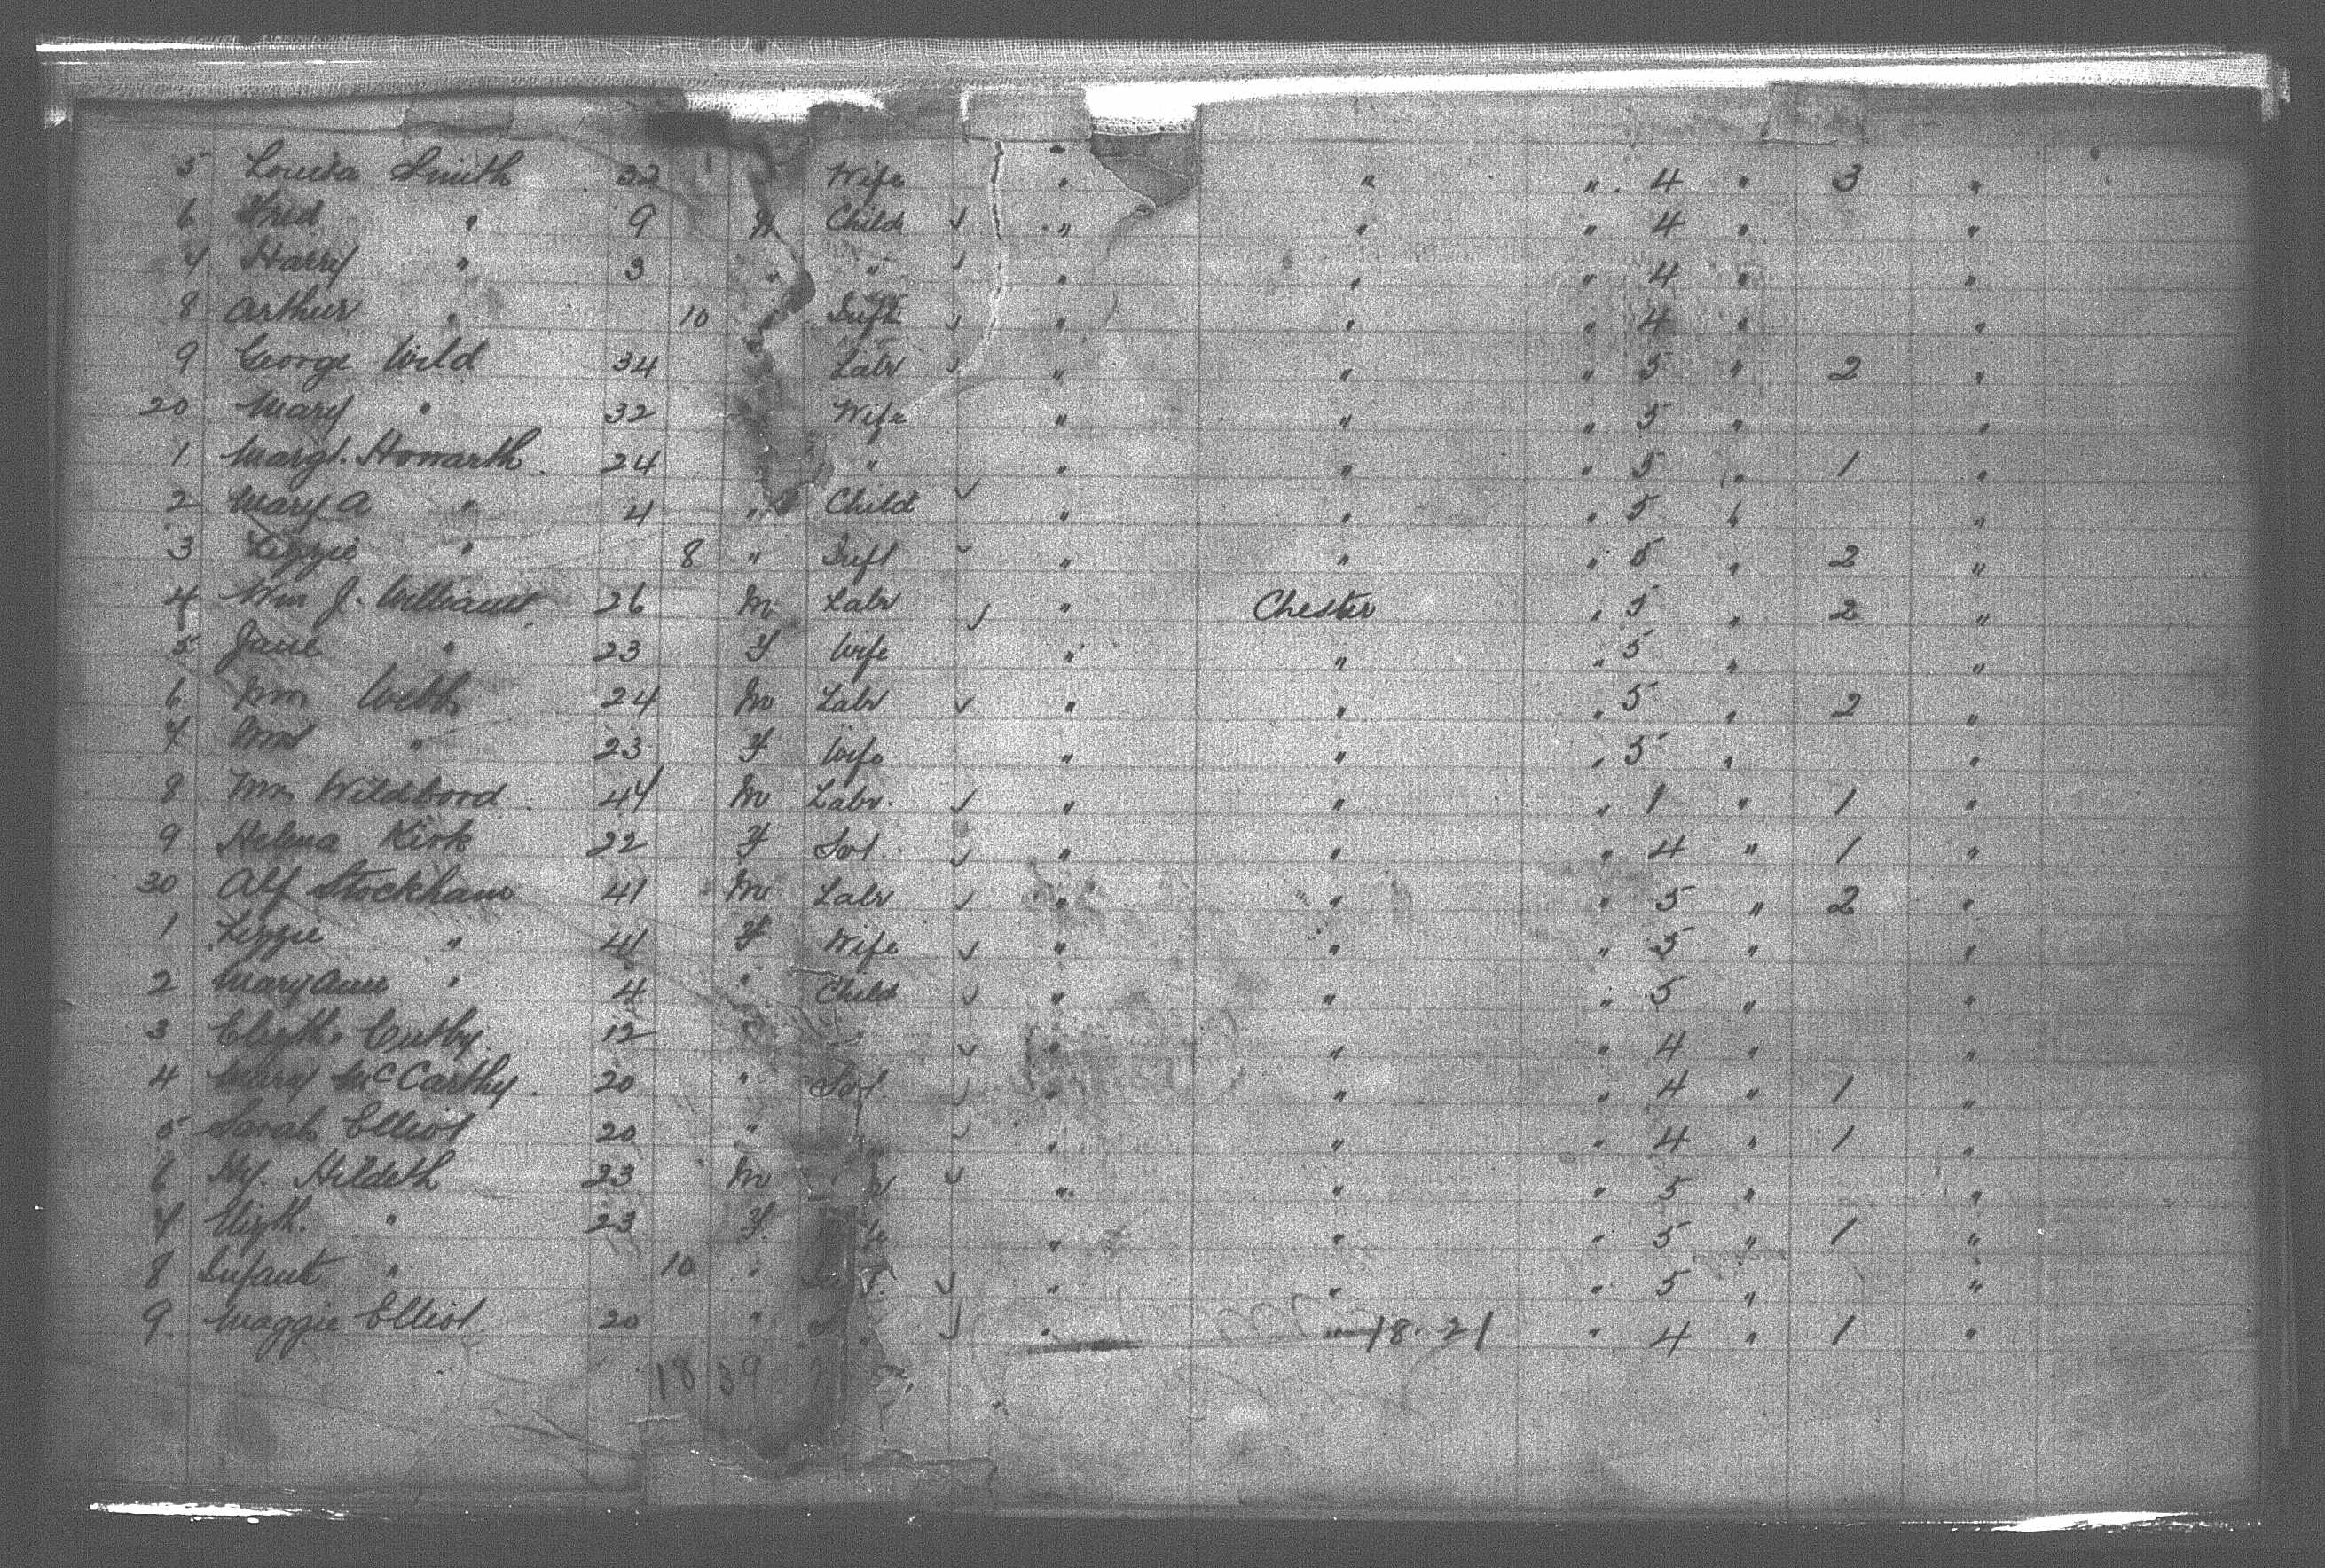 5 Louisa Smith 32 Wife " " " 4 " 3 "
6 Fred " 9 M Child " " " 4 " "
7 Harry " 3 " " " " " 4 " "
8 Arthur " 10 " Inft " " " 4 " "
9 George Wild 34 Labr " " " 5 " 2 "
20 Mary " 32 Wife " " " 5 " "
1 Margt. Howarth 24 " " " " 5 " 1 "
2 Mary A " 4 " Child " " " 5 " "
3 Lizzie " 8 " Inft " " " 5 " 2 "
4 Wm J. Williams 26 M Labr " Chester " 5 " 2 "
5 Jane " 23 F Wife " " " 5 " "
6 Wm Webb 24 M Labr " " " 5 " 2 "
7 Mrs " 23 F Wife " " " 5 " "
8 Wm Wildbord 44 M Labr. " " " 1 " 1 "
9 Helena Kirk 22 F Svt. " " " 4 " 1 "
30 Alf Stockham 41 M Labr " " " 5 " 2 "
1 Lizzie " 41 F Wife " " " 5 " "
2 Mary Ann " 4 " Child " " " 5 " "
3 Elizth. 12 " " " " " 4 " "
4 Mary McCarthy 20 " Svt. " " " 4 " 1 "
5 Sarah Elliot 20 " " " " 4 " 1 "
6 Hy. Hildeth 23 M " " " 5 " "
7 Elizth. " 23 F. " " " 5 " 1 "
8 Infant " 10 " " " " 5 " "
9 Maggie Elliot 20 " " " 18-21 " 4 " 1 "
18 39